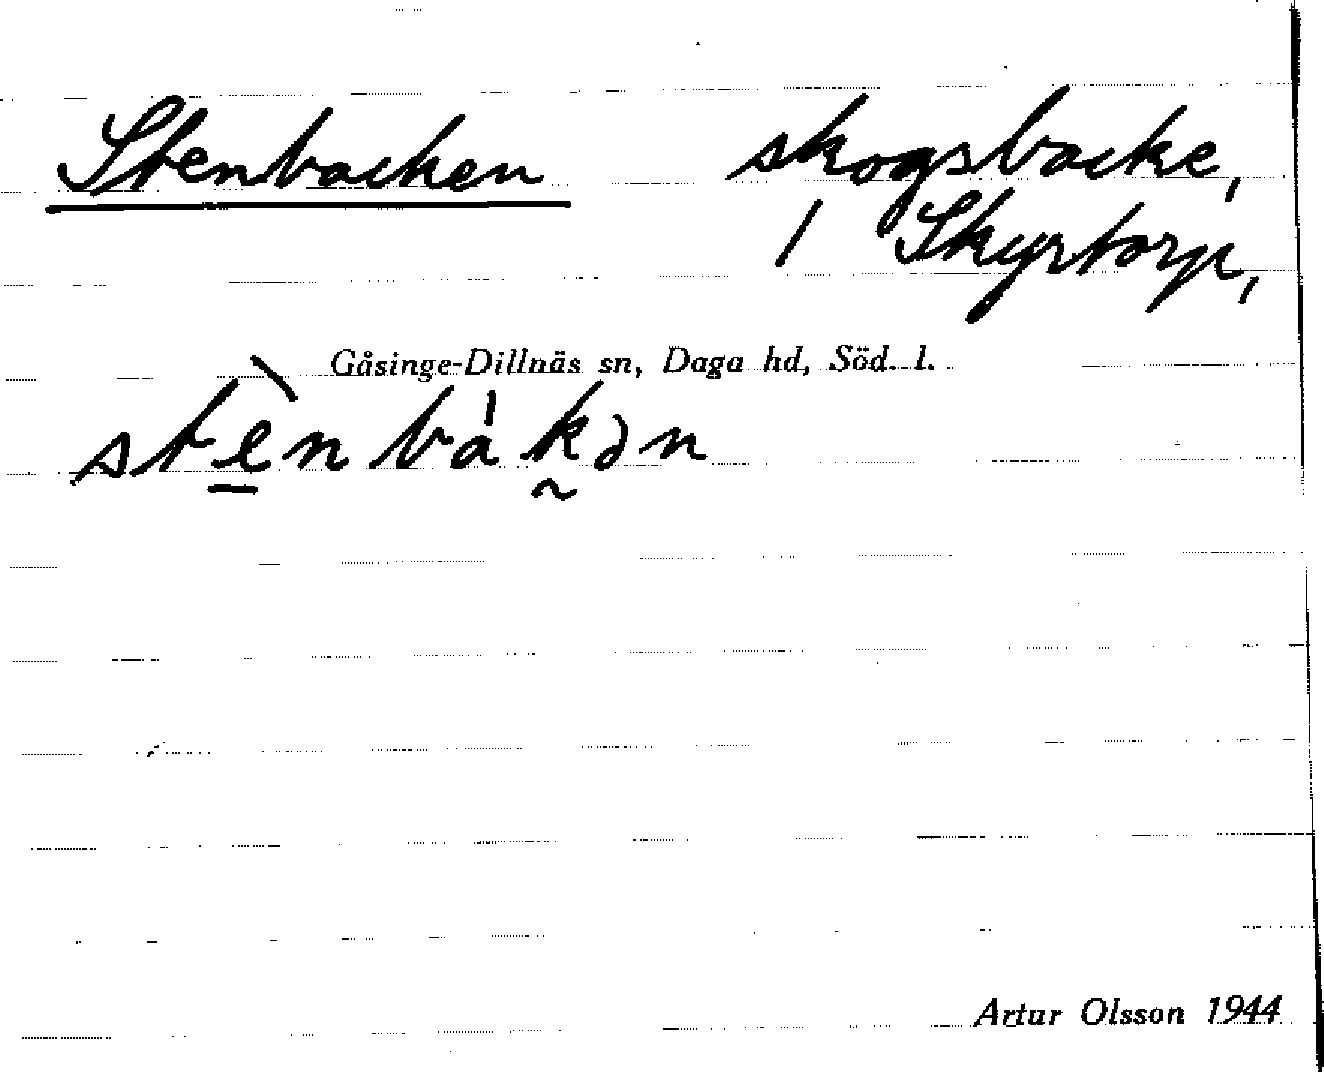 Stenbacken skogsbacke,
/ Skyrtorp,
Gåsinge-Dillnäs sn, Daga hd, Söd. l.
stè̲nbák̰ən
Artur Olsson 1944